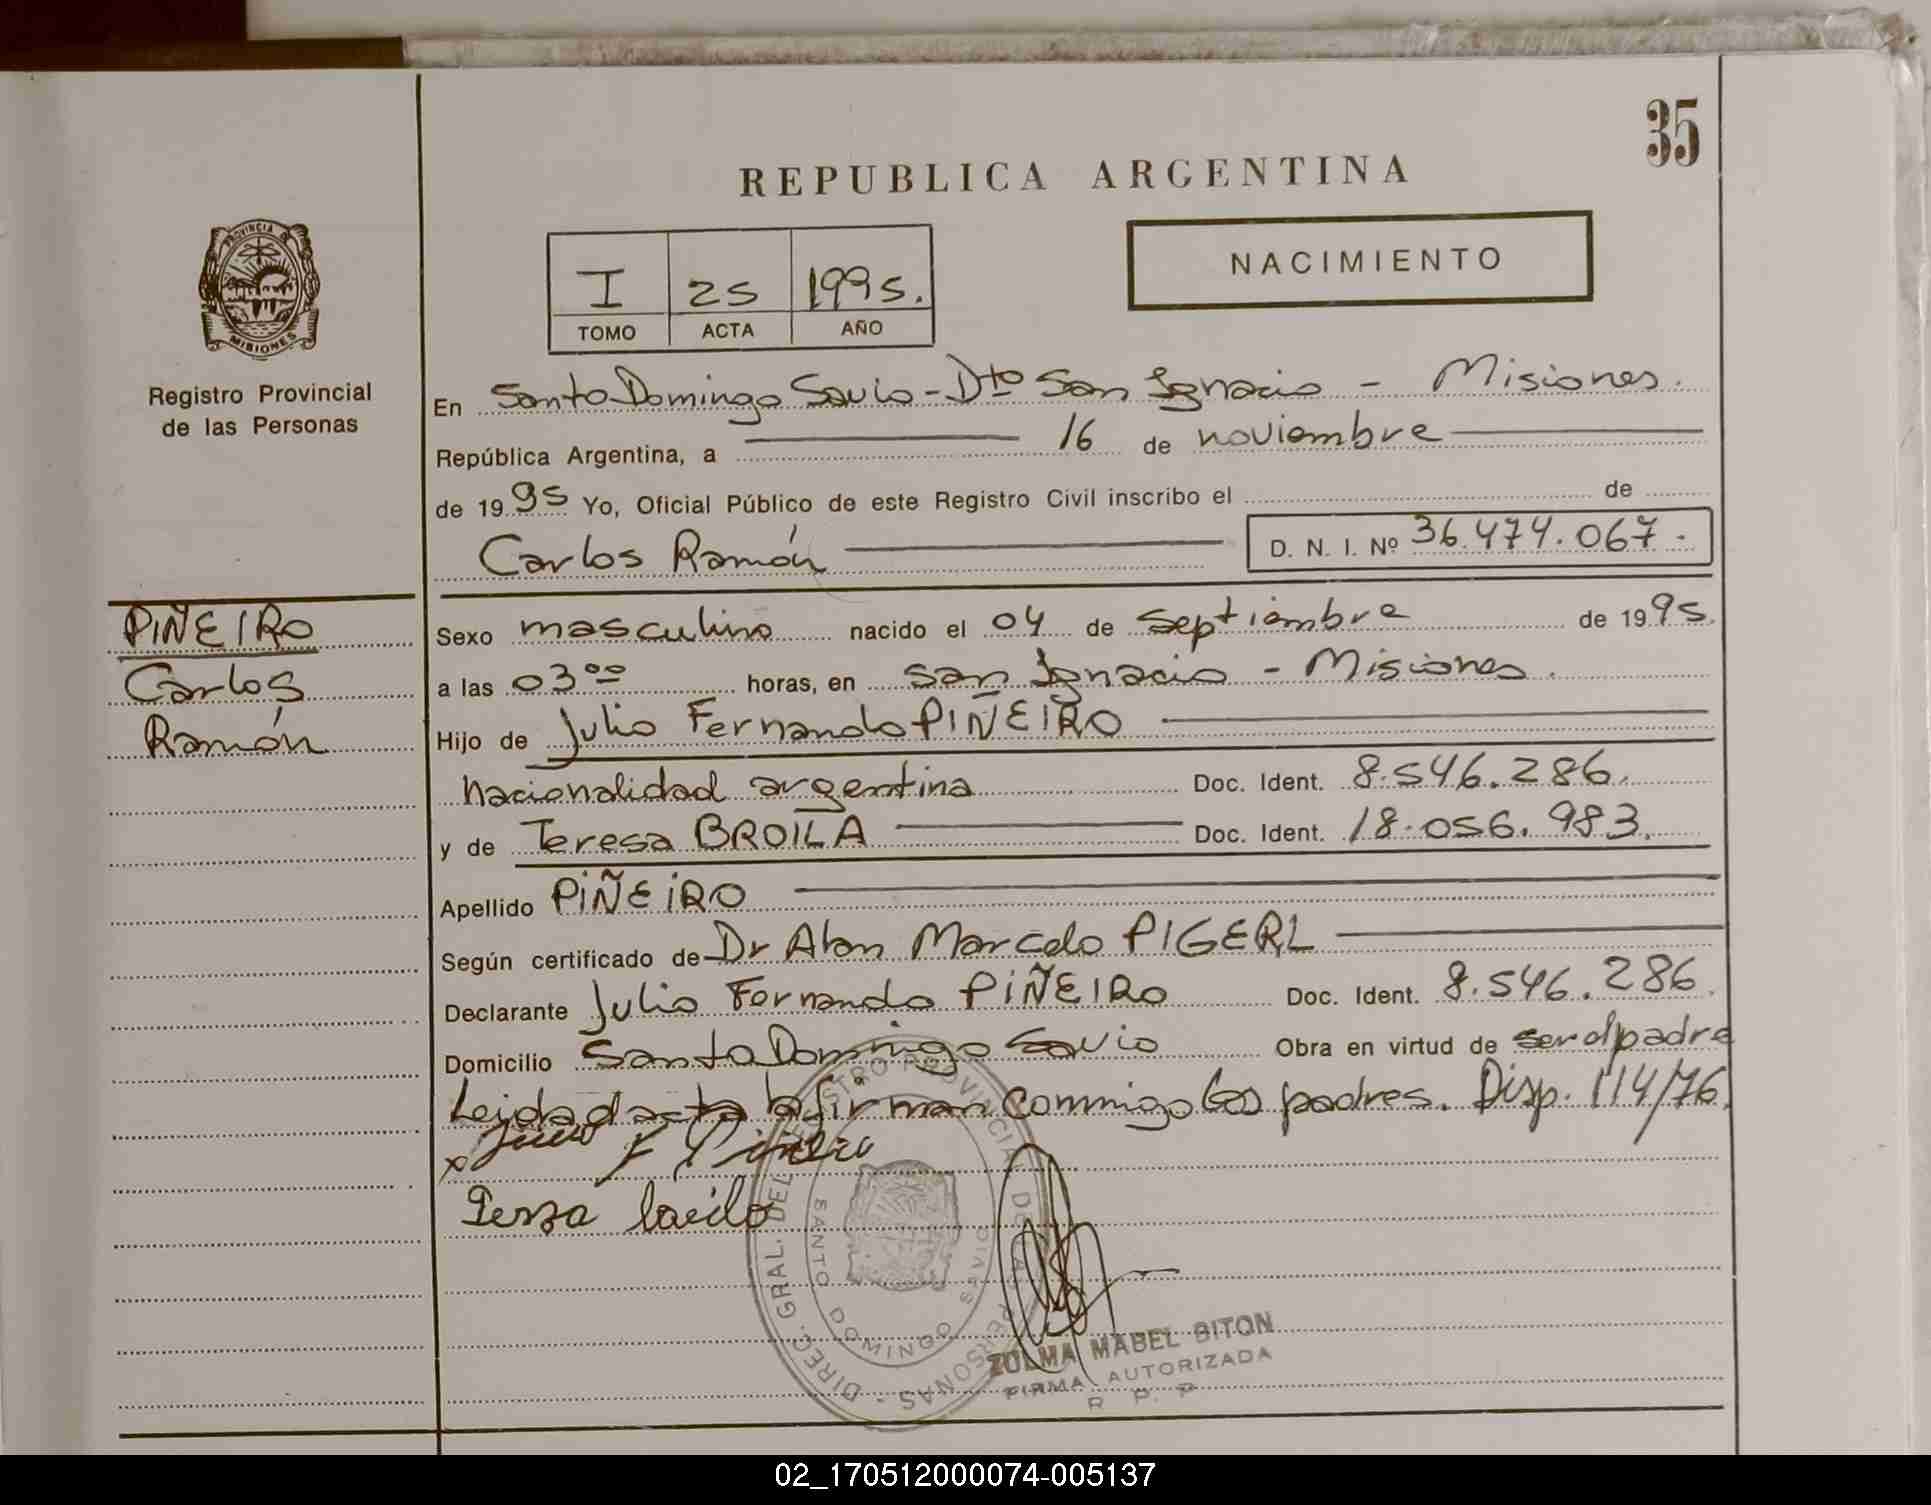 35
REPUBLICA ARGENTINA
PROVINCIA DE
MISIONES
Registro Provincial
de las Personas
I 25 1995.
TOMO ACTA AÑO
NACIMIENTO
En Santo Domingo Savio - Dto San Ignacio - Misiones.
República Argentina, a 16 de noviembre
de 1995 Yo, Oficial Público de este Registro Civil inscribo el de
Carlos Ramón D. N. I. Nº 36.474.067.
PIÑEIRO
Carlos
Ramón
Sexo masculino nacido el 04 de septiembre de 1995.
a las 03 oo horas, en San Ignacio - Misiones.
Hijo de Julio Fernando PIÑEIRO
nacionalidad argentina Doc. Ident. 8.546.286.
y de Teresa BROILA Doc. Ident. 18.056.983.
Apellido PIÑEIRO
Según certificado de Dr Alan Marcelo PIGERL
Declarante Julio Fernando PIÑEIRO Doc. Ident. 8.546.286.
Domicilio Santo Domingo Savio Obra en virtud de ser el padre
Leida el acta la firman conmigo los padres. Disp. 114/76.
DIREC. GRAL. DEL REGISTRO PROVINCIAL DE LAS PERSONAS -
SANTO DOMINGO SAVIO
ZULMA MABEL BITON
FIRMA AUTORIZADA
R. P. P.
02_170512000074-005137